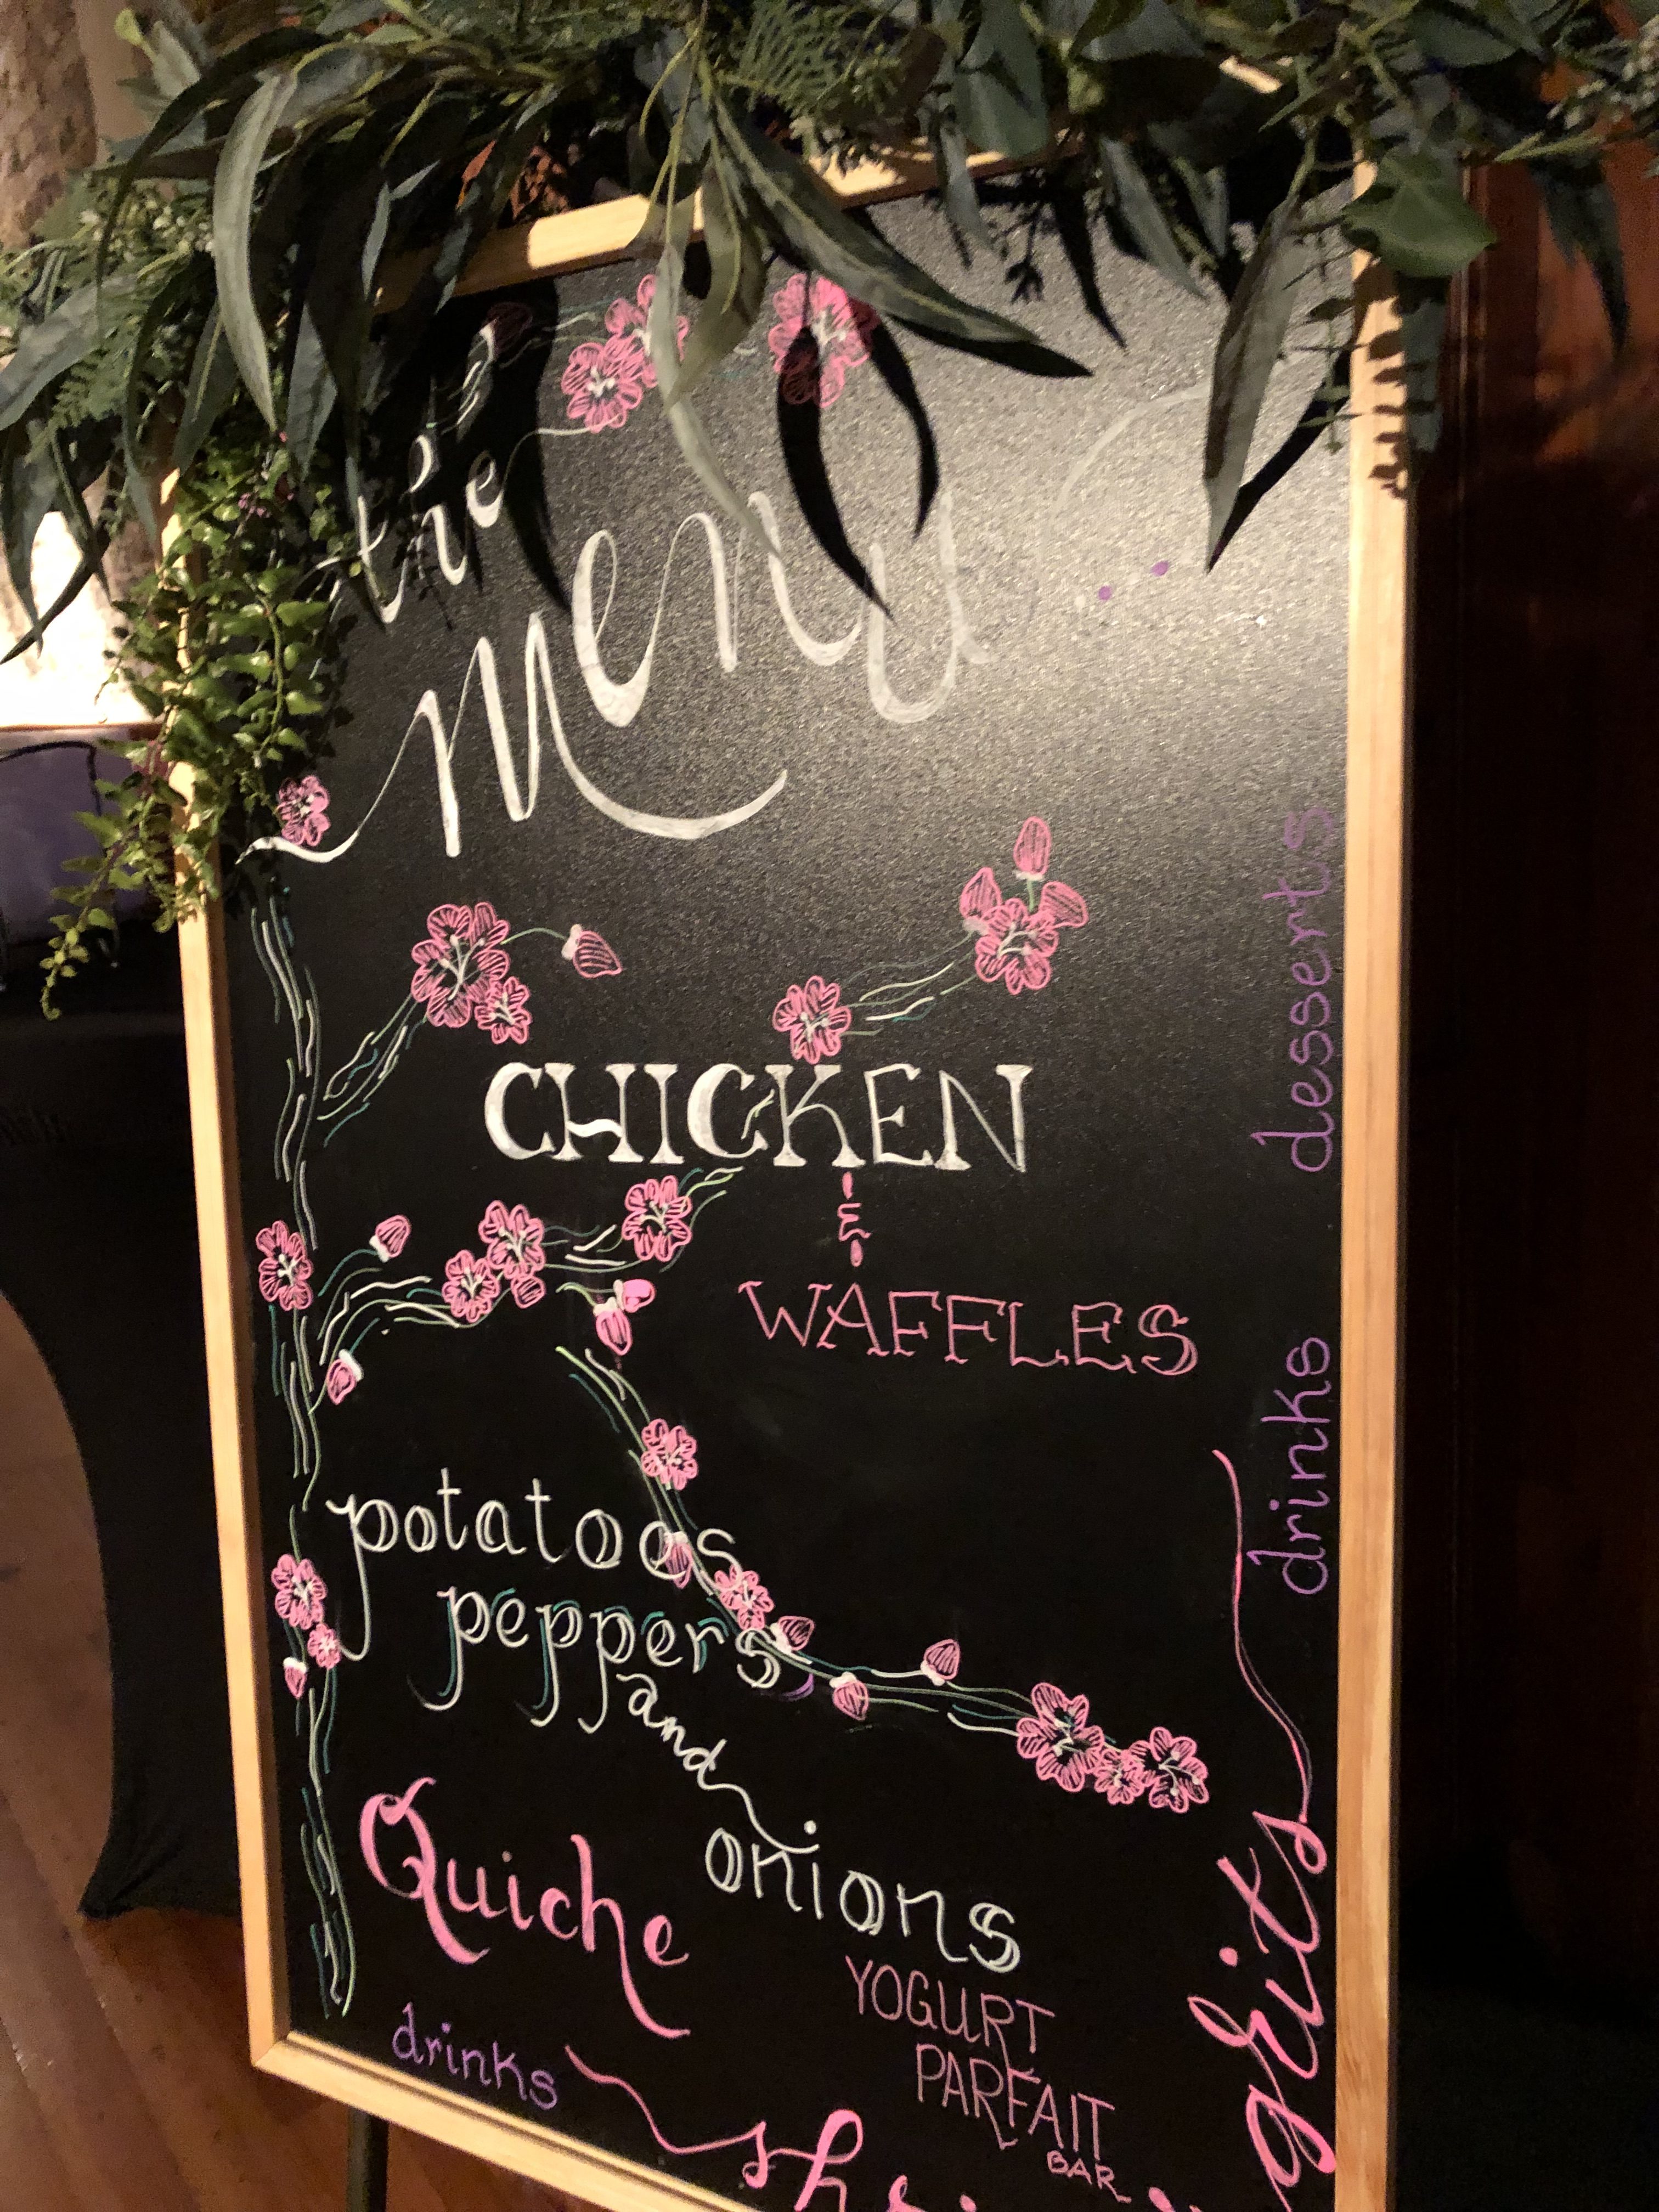 the
menu
CHICKEN
&
WAFFLES
potatoes,
peppers,
and
onions
Quiche
YOGURT
PARFAIT
BAR
drinks
grits
desserts
drinks